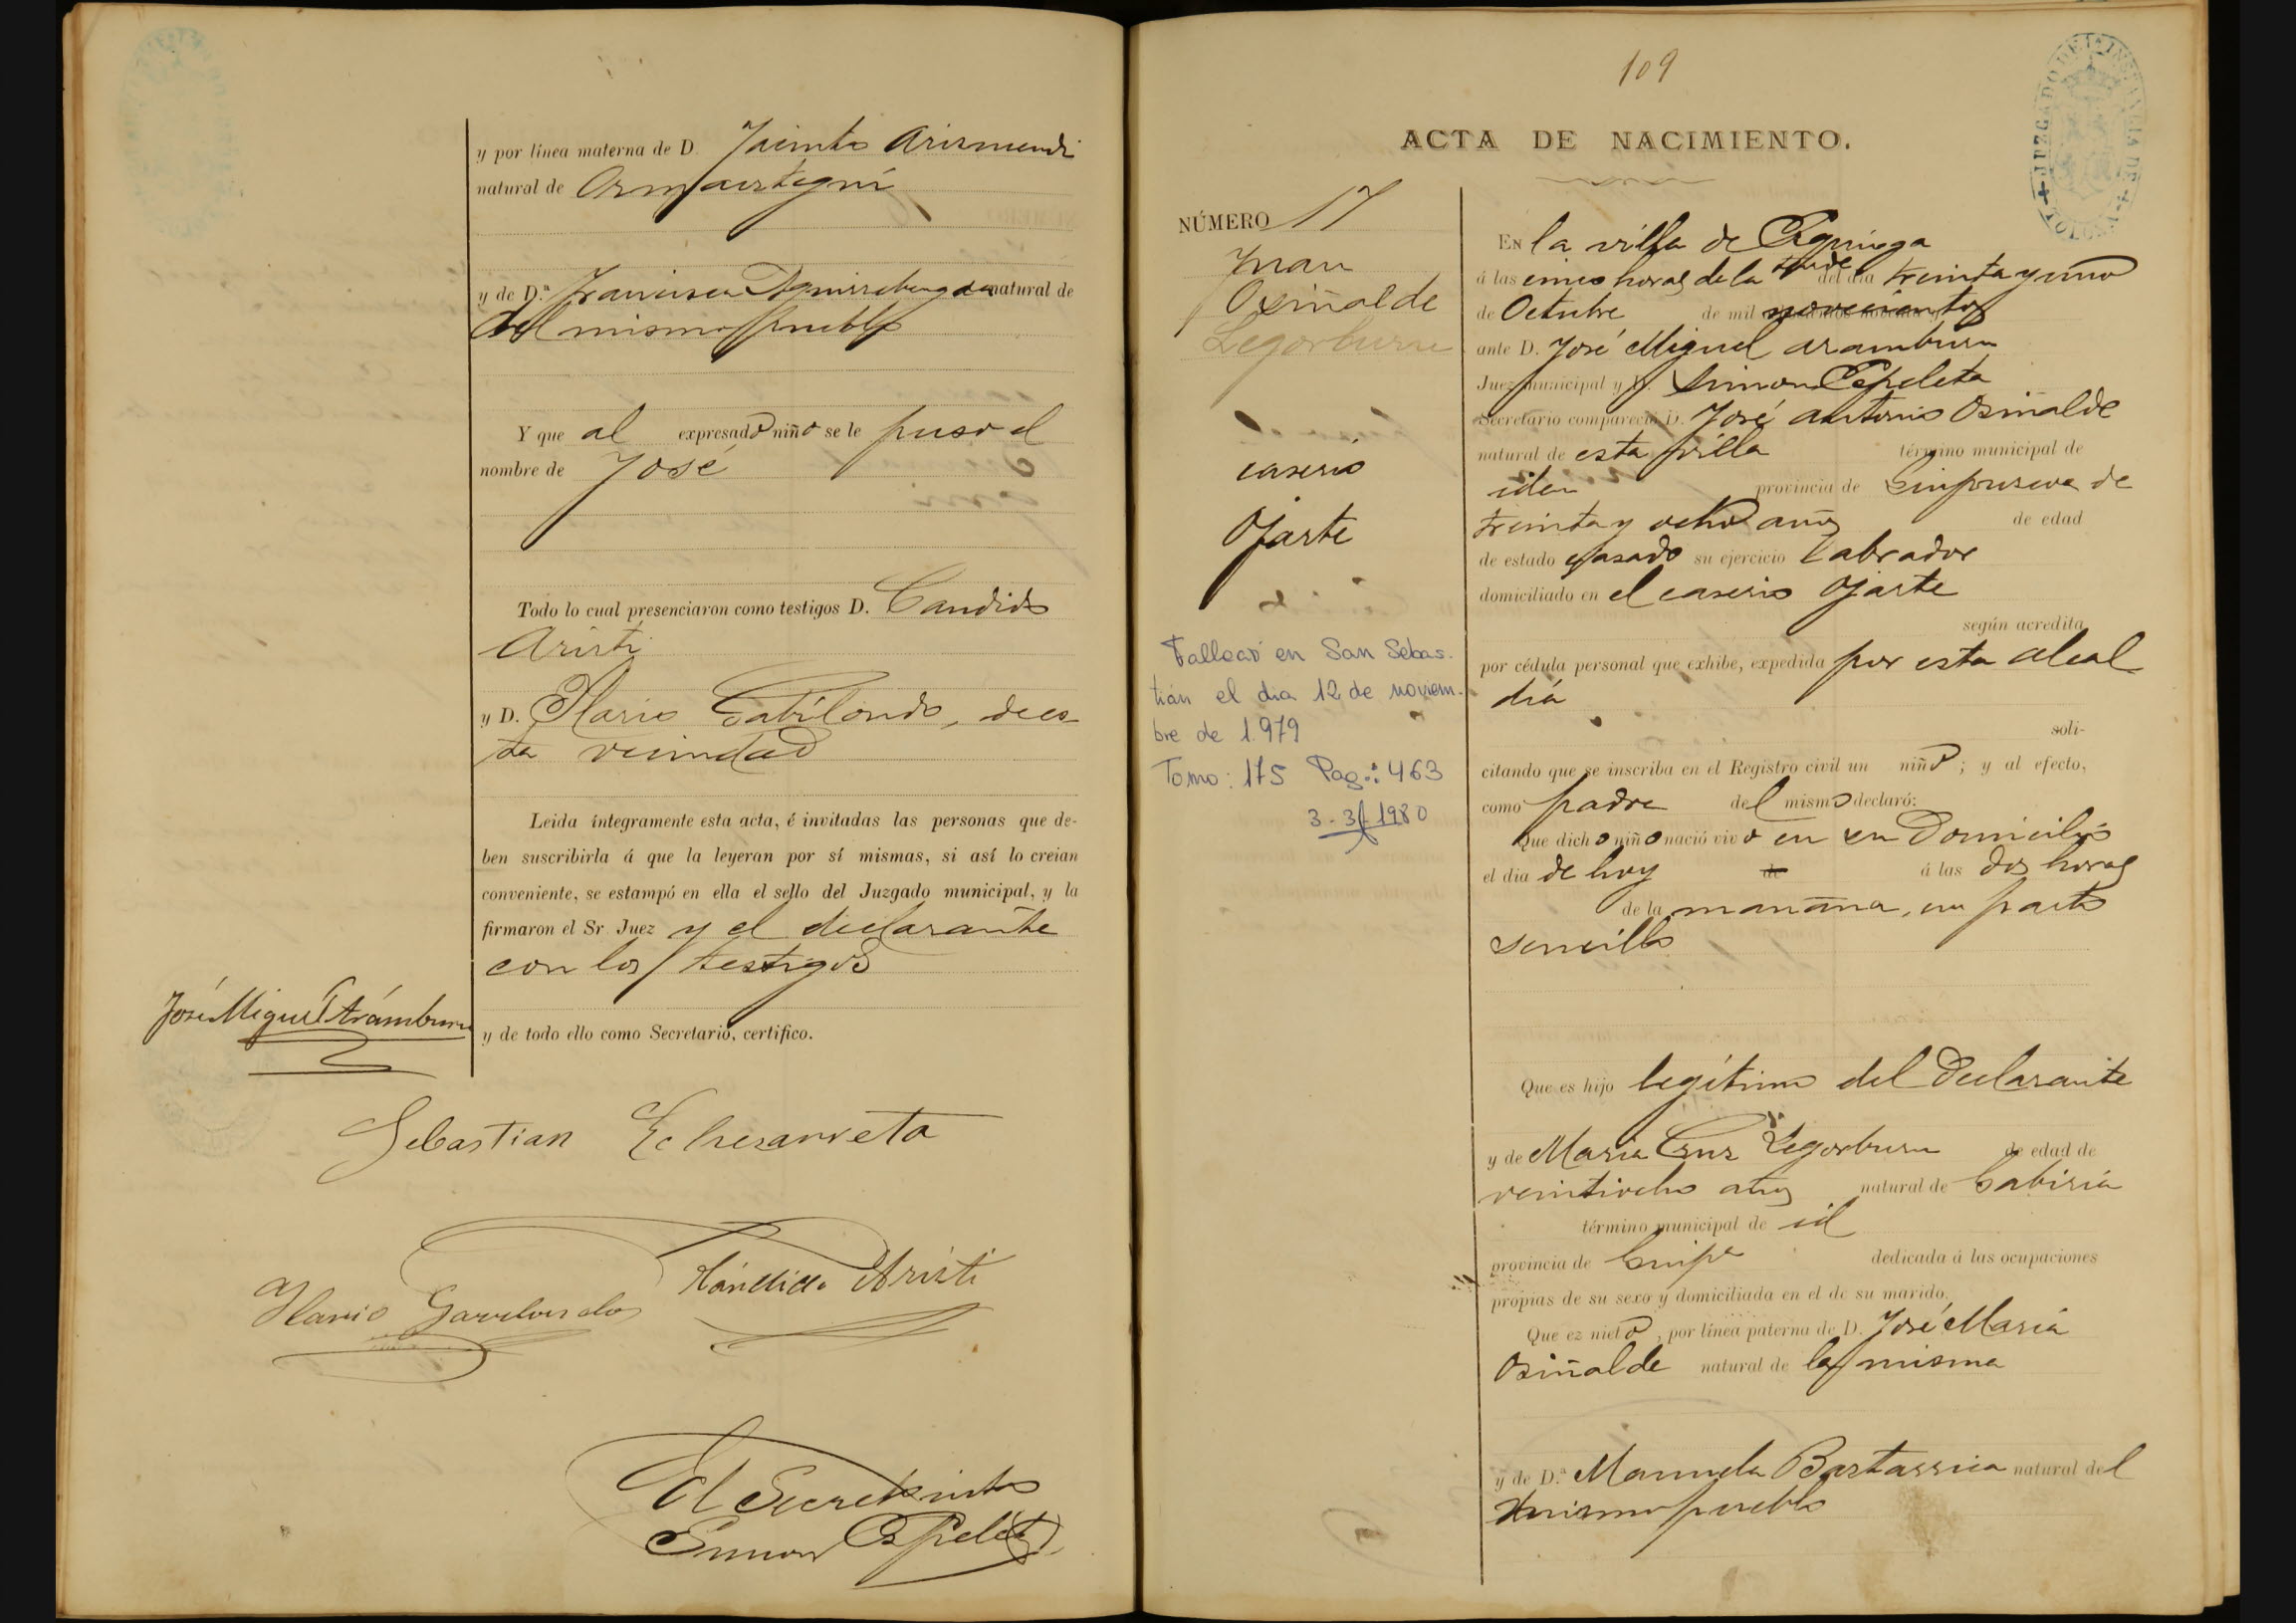 y por línea materna de D. Jacinto Arismendi
natural de Ormaiztegui
y de D.ª Francisca Aguirrebengoa natural de
del mismo pueblo
Y que al expresado niño se le puso el
nombre de José
Todo lo cual presenciaron como testigos D. Candido
Aristi
y D. Ylario Gabilondo, de es
ta vecindad
Leida íntegramente esta acta, é invitadas las personas que de-
ben suscribirla á que la leyeran por sí mismas, si así lo creian
conveniente, se estampó en ella el sello del Juzgado municipal, y la
firmaron el Sr. Juez y el declarante
con los testigos
y de todo ello como Secretario, certifico.
José Miguel Arámburu
Sebastian Echezarreta
Cándido Aristi
Ylario Gavilondo
El Secretario
Simon Espeleta
109
JUZGADO DE 1ª INSTANCIA DE TOLOSA
ACTA DE NACIMIENTO.
NÚMERO 17
Juan
Osiñalde
Legorburu
caserio
Ojarte
Falleció en San Sebas-
tián el dia 12 de noviem-
bre de 1979
Tomo: 175 Pag.: 463
3-3-1980
En la villa de Ezquioga
á las cinco horas de la tarde del dia treinta y uno
de Octubre de mil novecientos
ante D. José Miguel Aramburu
Juez municipal y D. Simon Espeleta
Secretario compareció D. José Antonio Osiñalde
natural de esta villa término municipal de
idem provincia de Guipuzcoa de
treinta y ocho años de edad
de estado casado su ejercicio labrador
domiciliado en el caserio Ojarte
según acredita
por cédula personal que exhibe, expedida por esta alcal
día
soli-
citando que se inscriba en el Registro civil un niño; y al efecto,
como padre del mismo declaró:
Que dicho niño nació vivo en su domicilio
el dia de hoy de á las dos horas
de la mañana, en parto
sencillo
Que es hijo legítimo del declarante
y de Maria Cruz Legorburu de edad de
veintiocho años natural de Gabiria
término municipal de id
provincia de Guipª dedicada á las ocupaciones
propias de su sexo y domiciliada en el de su marido.
Que es nieto, por línea paterna de D. José María
Osiñalde natural de la misma
y de D.ª Manuela Bastarrica natural del
mismo pueblo